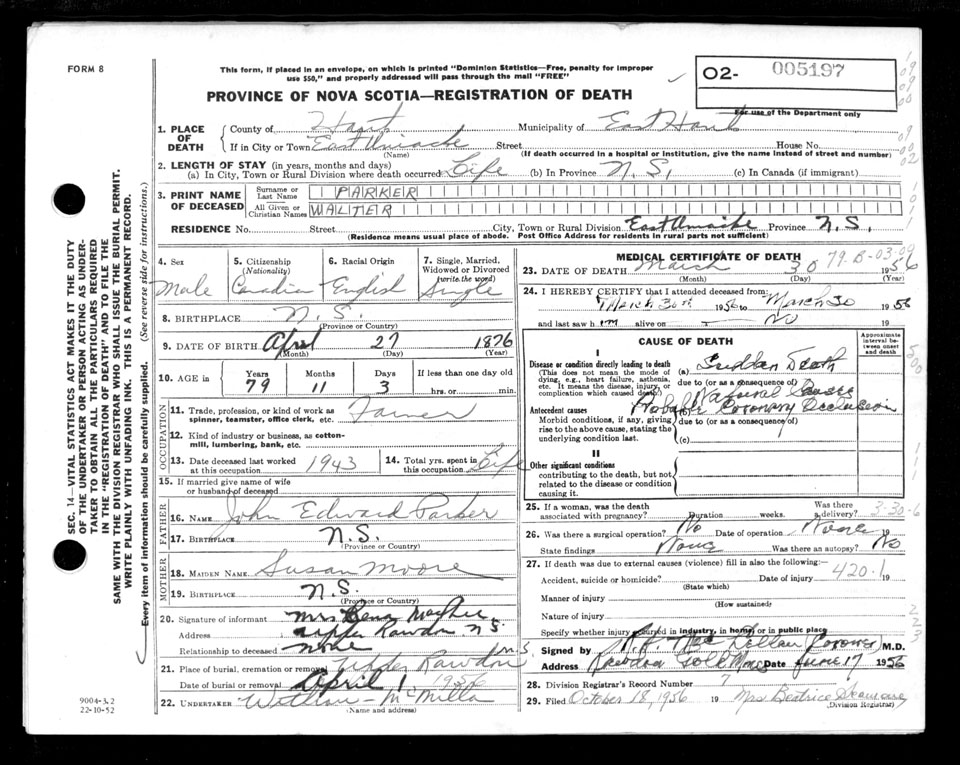 FORM 8
This form, if placed in an envelope, on which is printed "Dominion Statistics—Free, penalty for improper
use $50," and properly addressed will pass through the mail "FREE"
O2- 005197
For use of the Department only
PROVINCE OF NOVA SCOTIA—REGISTRATION OF DEATH
1. PLACE OF DEATH
County of Hants Municipality of East Hants
If in City or Town East Uniacke Street House No.
(Name) (If death occurred in a hospital or institution, give the name instead of street and number)
2. LENGTH OF STAY (in years, months and days)
(a) In City, Town or Rural Division where death occurred Life (b) In Province N.S. (c) In Canada (if immigrant)
3. PRINT NAME OF DECEASED
Surname or Last Name PARKER
All Given or Christian Names WALTER
RESIDENCE No. Street City, Town or Rural Division East Uniacke Province N.S.
(Residence means usual place of abode. Post Office Address for residents in rural parts not sufficient)
4. Sex Male
5. Citizenship (Nationality) Canadian
6. Racial Origin English
7. Single, Married, Widowed or Divorced (write the word) Single
8. BIRTHPLACE N.S.
(Province or Country)
9. DATE OF BIRTH April 27 1876
(Month) (Day) (Year)
10. AGE in Years 79 Months 11 Days 3 If less than one day old hrs. or min.
OCCUPATION
11. Trade, profession, or kind of work as spinner, teamster, office clerk, etc. Farmer
12. Kind of industry or business, as cotton-mill, lumbering, bank, etc.
13. Date deceased last worked at this occupation 1943
14. Total yrs. spent in this occupation Life
15. If married give name of wife or husband of deceased
FATHER
16. NAME John Edward Parker
17. BIRTHPLACE N.S.
(Province or Country)
MOTHER
18. MAIDEN NAME Susan Moore
19. BIRTHPLACE N.S.
(Province or Country)
20. Signature of informant Mrs
Address Upper Rawdon N.S.
Relationship to deceased None
21. Place of burial, cremation or removal Upper Rawdon N.S.
Date of burial or removal April 1 1956
22. UNDERTAKER McMilla
(Name and address)
MEDICAL CERTIFICATE OF DEATH
79.B-03.09
23. DATE OF DEATH March 30 1956
(Month) (Day)
24. I HEREBY CERTIFY that I attended deceased from:
March 30th 1956 to March 30 1956
and last saw him alive on - No 19
CAUSE OF DEATH
Approximate interval between onset and death
I
Disease or condition directly leading to death
(This does not mean the mode of dying, e.g., heart failure, asthenia, etc. It means the disease, injury, or complication which caused death)
(a) Sudden Death
due to (or as a consequence of)
Natural Causes
Antecedent causes
Morbid conditions, if any, giving rise to the above cause, stating the underlying condition last.
Probable Coronary Occlusion
due to (or as a consequence of)
(c)
II
Other significant conditions
contributing to the death, but not related to the disease or condition causing it.
25. If a woman, was the death associated with pregnancy? Duration weeks. Was there a delivery?
3-30-6
26. Was there a surgical operation? No Date of operation None 19
State findings None Was there an autopsy? No
27. If death was due to external causes (violence) fill in also the following:
Accident, suicide or homicide? Date of injury 19
(State which)
420.1
Manner of injury
(How sustained)
Nature of injury
Specify whether injury occurred in industry, in home, or in public place
Signed by Coroner M.D.
Address Rawdon Gold Mines Date June 17 1956
28. Division Registrar's Record Number 7
29. Filed October 18, 1956 Mrs Beatrice
(Division Registrar)
SEC. 14—VITAL STATISTICS ACT MAKES IT THE DUTY
OF THE UNDERTAKER OR PERSON ACTING AS UNDER-
TAKER TO OBTAIN ALL THE PARTICULARS REQUIRED
IN THE "REGISTRATION OF DEATH" AND TO FILE THE
SAME WITH THE DIVISION REGISTRAR WHO SHALL ISSUE THE BURIAL PERMIT.
WRITE PLAINLY WITH UNFADING INK. THIS IS A PERMANENT RECORD.
Every item of information should be carefully supplied. (See reverse side for instructions.)
9004-3.2
22-10-52